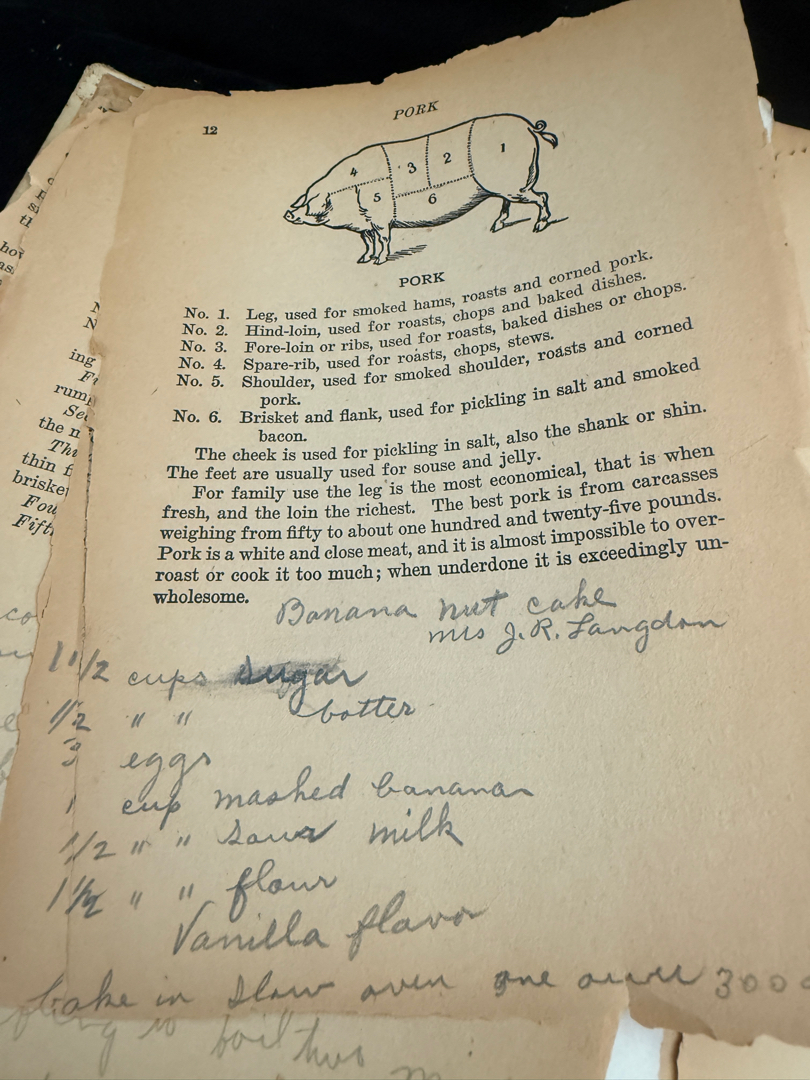 12
PORK
4
3
2
1
5
6
PORK
No. 1. Leg, used for smoked hams, roasts and corned pork.
No. 2. Hind-loin, used for roasts, chops and baked dishes.
No. 3. Fore-loin or ribs, used for roasts, baked dishes or chops.
No. 4. Spare-rib, used for roasts, chops, stews.
No. 5. Shoulder, used for smoked shoulder, roasts and corned
pork.
No. 6. Brisket and flank, used for pickling in salt and smoked
bacon.
The cheek is used for pickling in salt, also the shank or shin.
The feet are usually used for souse and jelly.
For family use the leg is the most economical, that is when
fresh, and the loin the richest. The best pork is from carcasses
weighing from fifty to about one hundred and twenty-five pounds.
Pork is a white and close meat, and it is almost impossible to over-
roast or cook it too much; when underdone it is exceedingly un-
wholesome.
Banana nut cake
mrs J. R. Langdon
1 1/2 cups sugar
1/2 " " botter
3 eggs
1 cup mashed bananas
1/2 " " sour milk
1 1/2 " " flour
Vanilla flavor
bake in slow oven one 300
to boil two
ing
the n
thin f
briske